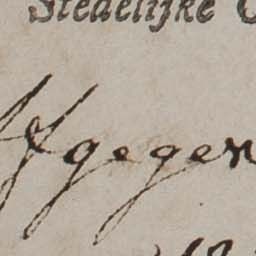 Stedelijke
Afgegen